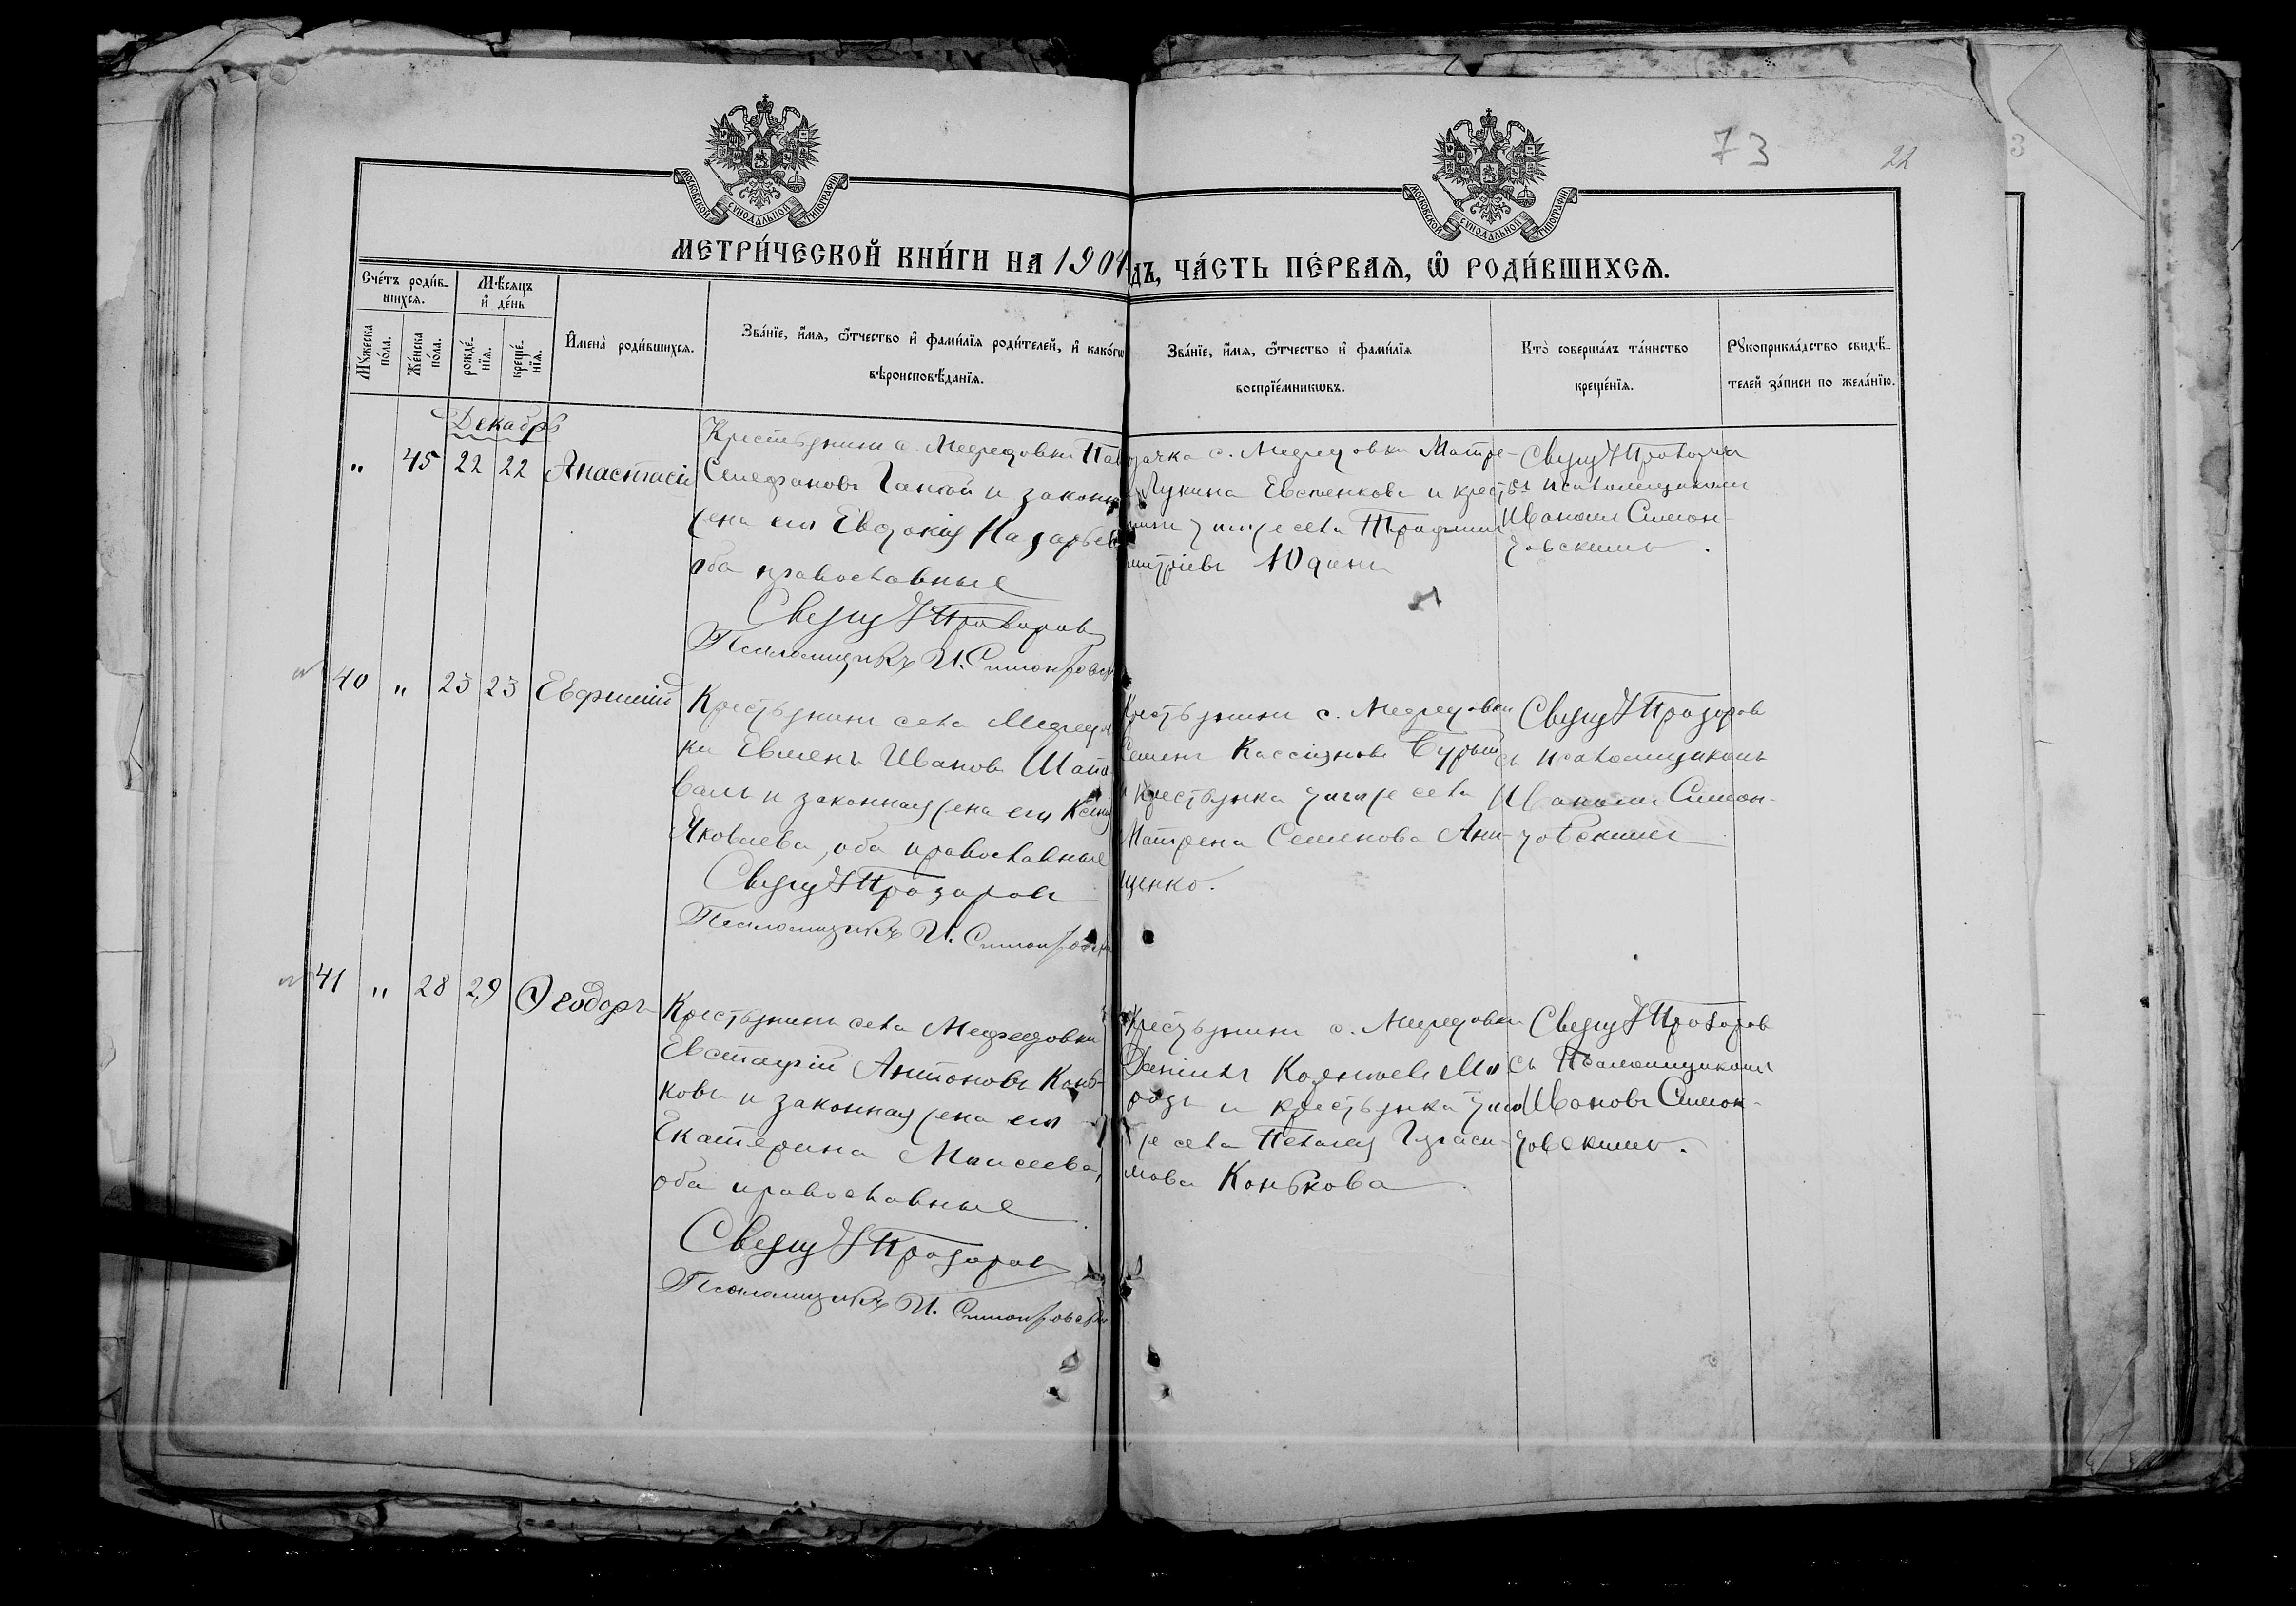 МОСКОВСКОЙ СѴНОДАЛЬНОЙ ТИПОГРАФІИ
МОСКОВСКОЙ СѴНОДАЛЬНОЙ ТИПОГРАФІИ
73
22
МЕТРИ́ЧЕСКОЙ КНИ́ГИ НА 1901
дъ, ЧА́СТЬ ПЕ́РВАЯ, Ѽ РОДИ́ВШИХСЯ.
Сче́тъ роди́в-
шихся.
Мѣ́сяцъ
и҆ де́нь
Мꙋ́жеска
по́ла.
Же́нска
по́ла.
рожде́-
нїѧ.
креще́-
нїѧ.
И҆мена̀ роди́вшихся.
Зва́нїе, и҆́мя, ѻ҆́тчество и҆ фами́лїя роди́телей, и҆ како́гѡ
вѣроисповѣ́данїя.
Зва́нїе, и҆́мя, ѻ҆́тчество и҆ фами́лїя
воспрїе́мникѡвъ.
Кто̀ соверша́лъ та́инство
креще́нїя.
Рꙋкоприкла́дство свидѣ́-
телей за́писи по жела́нїю.
Декабрь
" 45 22 22 Анастасія
Крестьянинъ с. Медведовки
Стефановъ и законная
жена его Евдокія Назарьев
оба православные
Свящ Прозоровъ
Псаломщикъ И. Симоновск
с. Медведовки Матре-
Лукина Евстенкова и кресть
того же села
митріевъ Юдинъ
Свящ Прозоровъ
съ псаломщикомъ
Иваномъ Симон-
овскимъ.
40 " 23 23 Евфимій
Крестьянинъ села Медведов
ки Евменъ Ивановъ Шапо
валъ и законная жена его Ксенія
Яковлева, оба православные
Свящ Прозоровъ
Псаломщикъ И. Симоновск
Крестьянинъ с. Медведовки
Семенъ Кассіановъ Бурый
и крестьянка того же села
Матрена Семенова Они-
щенко.
Свящ Прозоровъ
съ псаломщикомъ
Иваномъ Симон-
овскимъ
41 " 28 29 Ѳеодоръ
Крестьянинъ села Медведовки
Евстафій Антоновъ Конь-
ковъ и законная жена его
Екатерина Моисеева,
оба православные
Свящ Прозоровъ
Псаломщикъ И. Симоновск
Крестьянинъ с. Медведовки
Даніилъ Мо
розъ и крестьянка того
же села Пелагея Гераси-
мова Конькова
Свящ Прозоровъ
съ Псаломщикомъ
Ивановъ Симон-
овскимъ.